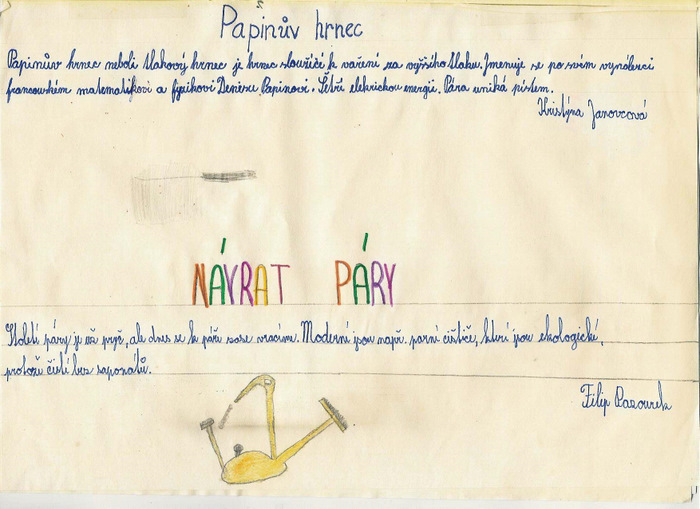 Papinův hrnec
Papinův hrnec neboli tlakový hrnec je hrnec sloužící k vaření za vyššího tlaku. Jmenuje se po svém vynálezci
francouzském matematikovi a fyzikovi Denisu Papinovi. Šetří elektrickou energii. Pára uniká pístem.
Kristýna Janovcová
NÁVRAT PÁRY
Století páry je už pryč, ale dnes se k páře zase vracíme. Moderní jsou např. parní čističe, které jsou ekologické,
protože čistí bez saponátů.
Filip Pazourek